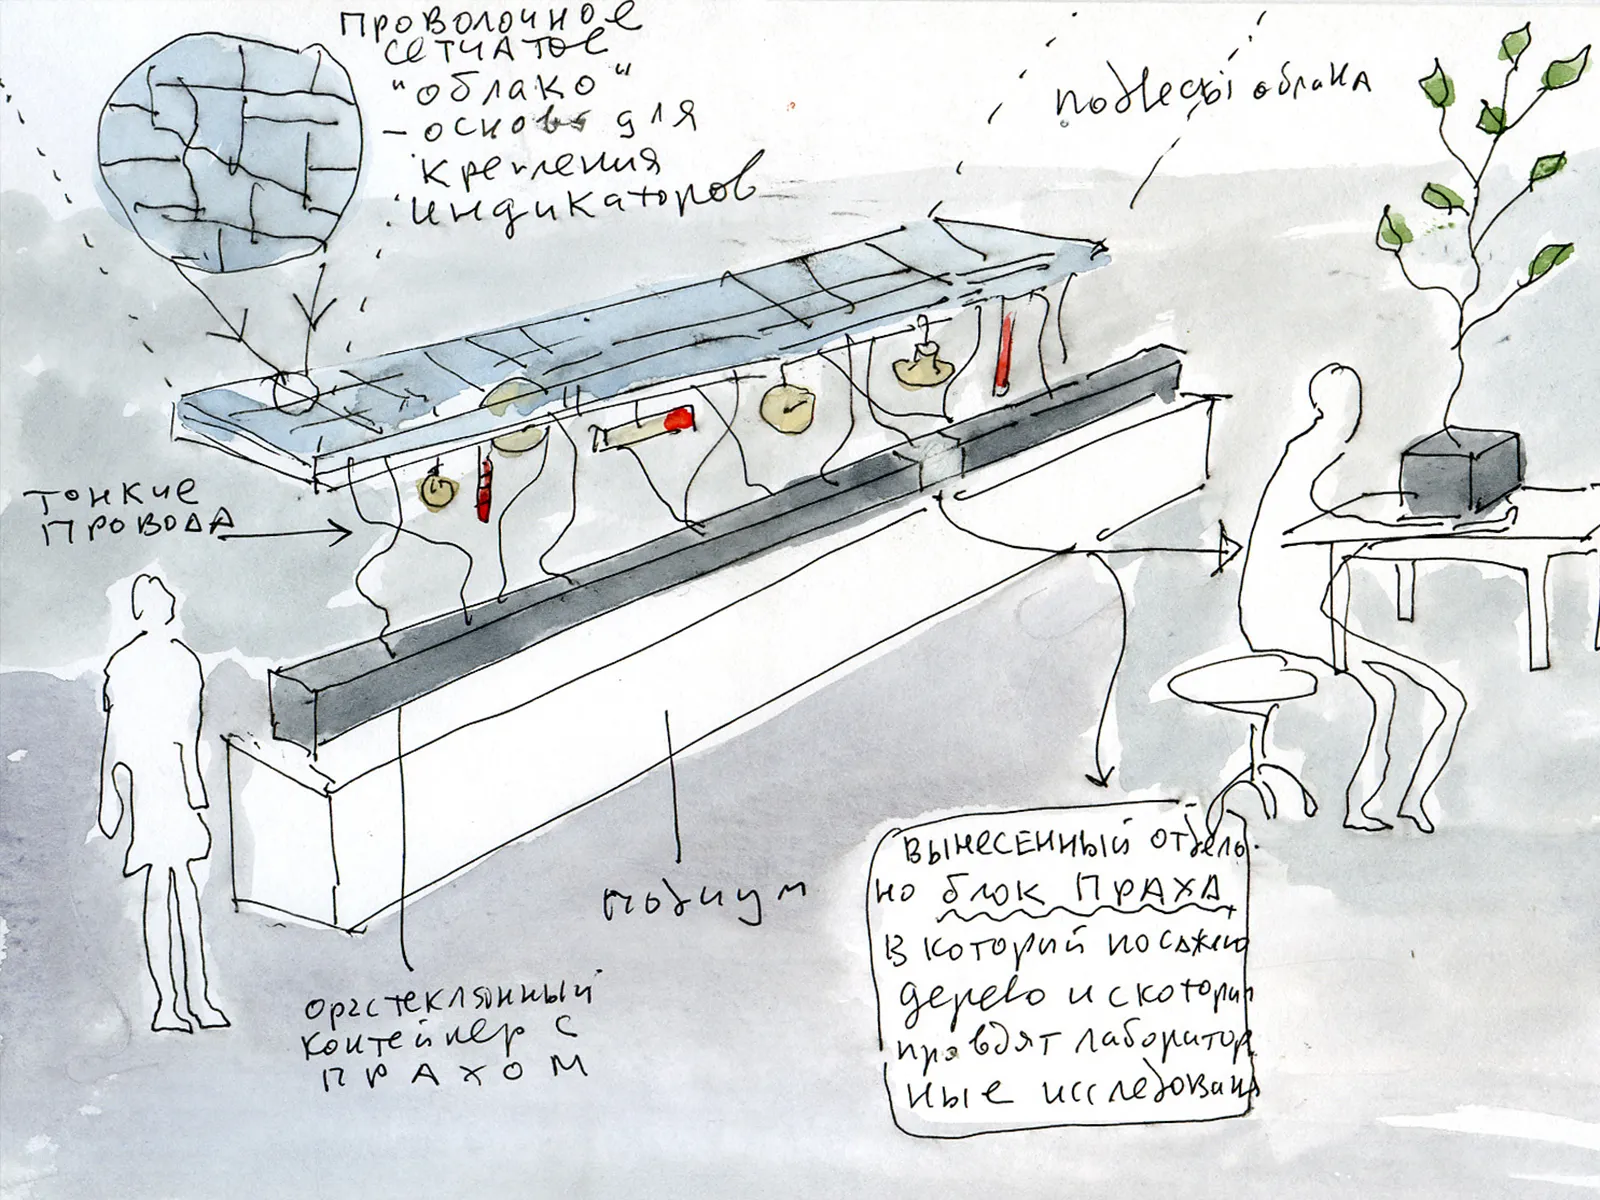 ПРОВОЛОЧНОЕ
СЕТЧАТОЕ
"облако"
- основа для
крепления
индикаторов
подвески облака
ТОНКИЕ
ПРОВОДА
подиум
оргстеклянный
контейнер с
ПРАХОМ
ВЫНЕСЕННЫЙ отдель-
но блок ПРАХА
в который посажено
дерево и с которым
проводят лаборатор
ные исследования